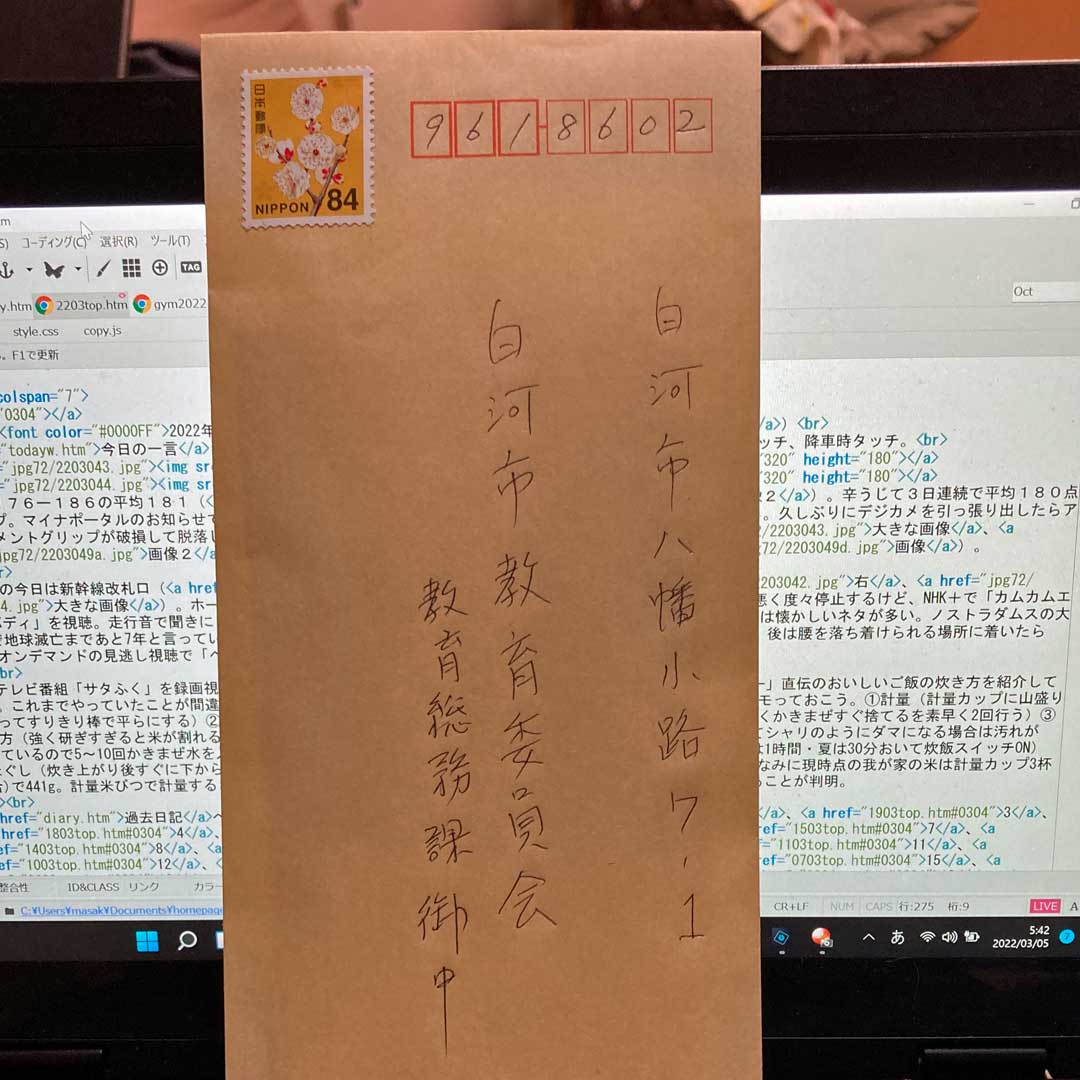 日本郵便
NIPPON 84
961-8602
白河市八幡小路7-1
白河市教育委員会
教育総務課 御中
コーディング(C) 選択(R) ツール(T)
TAG
y.htm 2203top.htm gym2022
Oct
style.css copy.js
。F1で更新
colspan="7">
"0304"></a>
<font color="#0000FF">2022年
="todayw.htm">今日の一言</a>
="jpg72/2203043.jpg"><img sr
="jpg72/2203044.jpg"><img sr
７６－１８６の平均１８１（<
プ。マイナポータルのお知らせで
メントグリップが破損して脱落し
jpg72/2203049a.jpg">画像２</a
r>
の今日は新幹線改札口（<a href
4.jpg">大きな画像</a>）。ホー
ボディ」を視聴。走行音で聞きに
で地球滅亡まであと7年と言ってい
オンデマンドの見逃し視聴で「ペ
br>
テレビ番組「サタふく」を録画視
。これまでやっていたことが間違
ってすりきり棒で平らにする）②
方（強く研ぎすぎると米が割れる
ているので5～10回かきまぜ水を
ほぐし（炊き上がり後すぐに下から
合)で441g。計量米びつで計量する
><br>
href="diary.htm">過去日記</a>
="1803top.htm#0304">4</a>、
"1403top.htm#0304">8</a>、<a
"1003top.htm#0304">12</a>、<a
/a>）<br>
ッチ、降車時タッチ。<br>
"320" height="180"></a>
"320" height="180"></a>
２</a>）。辛うじて３日連続で平均１８０点
。久しぶりにデジカメを引っ張り出したらア
/2203043.jpg">大きな画像</a>、<a
72/2203049d.jpg">画像</a>）。
2203042.jpg">右</a>、<a href="jpg72/
悪く度々停止するけど、NHK＋で「カムカムエ
は懐かしいネタが多い。ノストラダムスの大
後は腰を落ち着けられる場所に着いたら
ー」直伝のおいしいご飯の炊き方を紹介して
モっておこう。①計量（計量カップに山盛り
くかきまぜすぐ捨てるを素早く2回行う）③
てシャリのようにダマになる場合は汚れが
は1時間・夏は30分おいて炊飯スイッチON）
なみに現時点の我が家の米は計量カップ3杯
ことが判明。
/a>、<a href="1903top.htm#0304">3</a>、
ef="1503top.htm#0304">7</a>、<a
"1103top.htm#0304">11</a>、<a
ef="0703top.htm#0304">15</a>、<a
整合性 ID&CLASS リンク カラー
C:¥Users¥masak¥Documents¥homepage
CR+LF NUM CAPS 行:275 桁:9 LIVE A
あ 5:42
2022/03/05 7